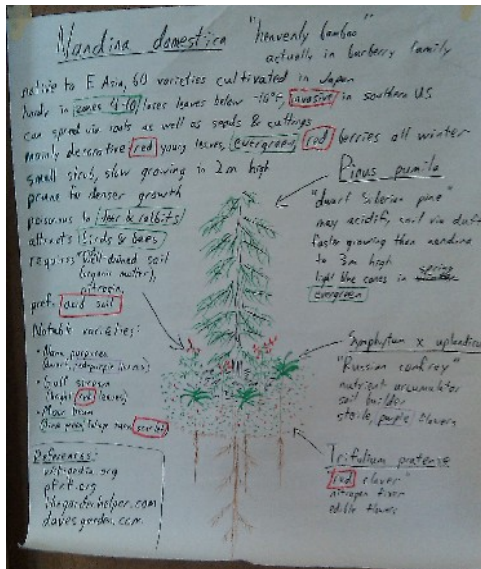 Nandina domestica
"heavenly bamboo"
actually in barberry family
native to E Asia, 60 varieties cultivated in Japan
hardy in zones 4-10, loses leaves below -10°F, invasive in southern US
can spread via roots as well as seeds & cuttings
mainly decorative red young leaves, evergreen, red berries all winter
small shrub, slow growing to 2m high
prune for denser growth
poisonous to deer & rabbits
attracts birds & bees
requires well-drained soil
(organic matter),
nitrogen
pref. acid soil
Notable varieties:
• Nana purpurea
leaves)
•
(bright red leaves)
•
References:
pfaf.org
thegardenhelper.com
davesgarden.com
Pinus pumila
"dwarf Siberian pine"
may acidify soil via duff
faster growing than nandina
to 3m high
light blue cones in spring
evergreen
Symphytum x uplandicum
"Russian comfrey"
nutrient accumulator
soil builder
sterile, purple flowers
Trifolium pratense
"red clover"
nitrogen fixer
edible flowers